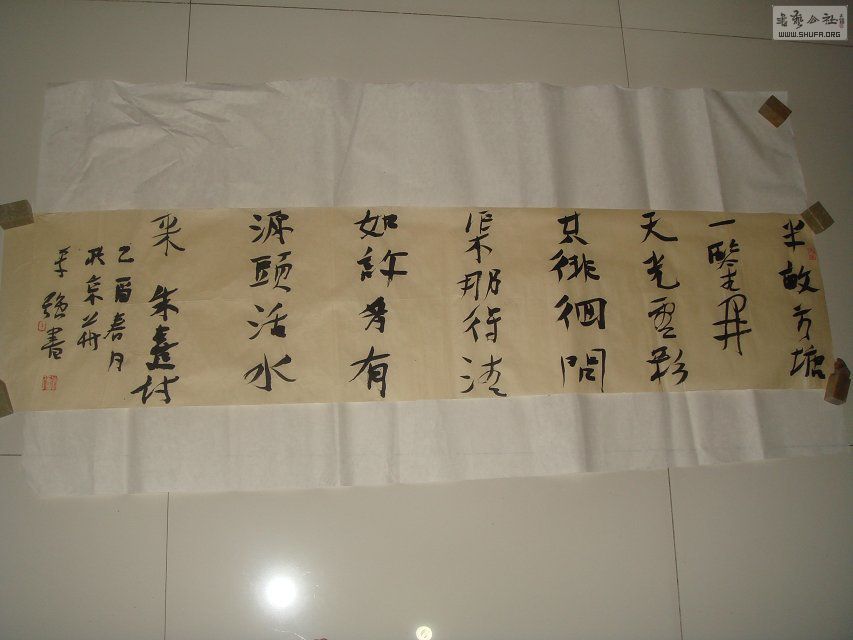 半畝方塘
一鑒開
天光雲影
共徘徊問
渠那得清
如許為有
源頭活水
来 朱熹詩
乙酉春月
於京華
強書
書藝公社
WWW.SHUFA.ORG